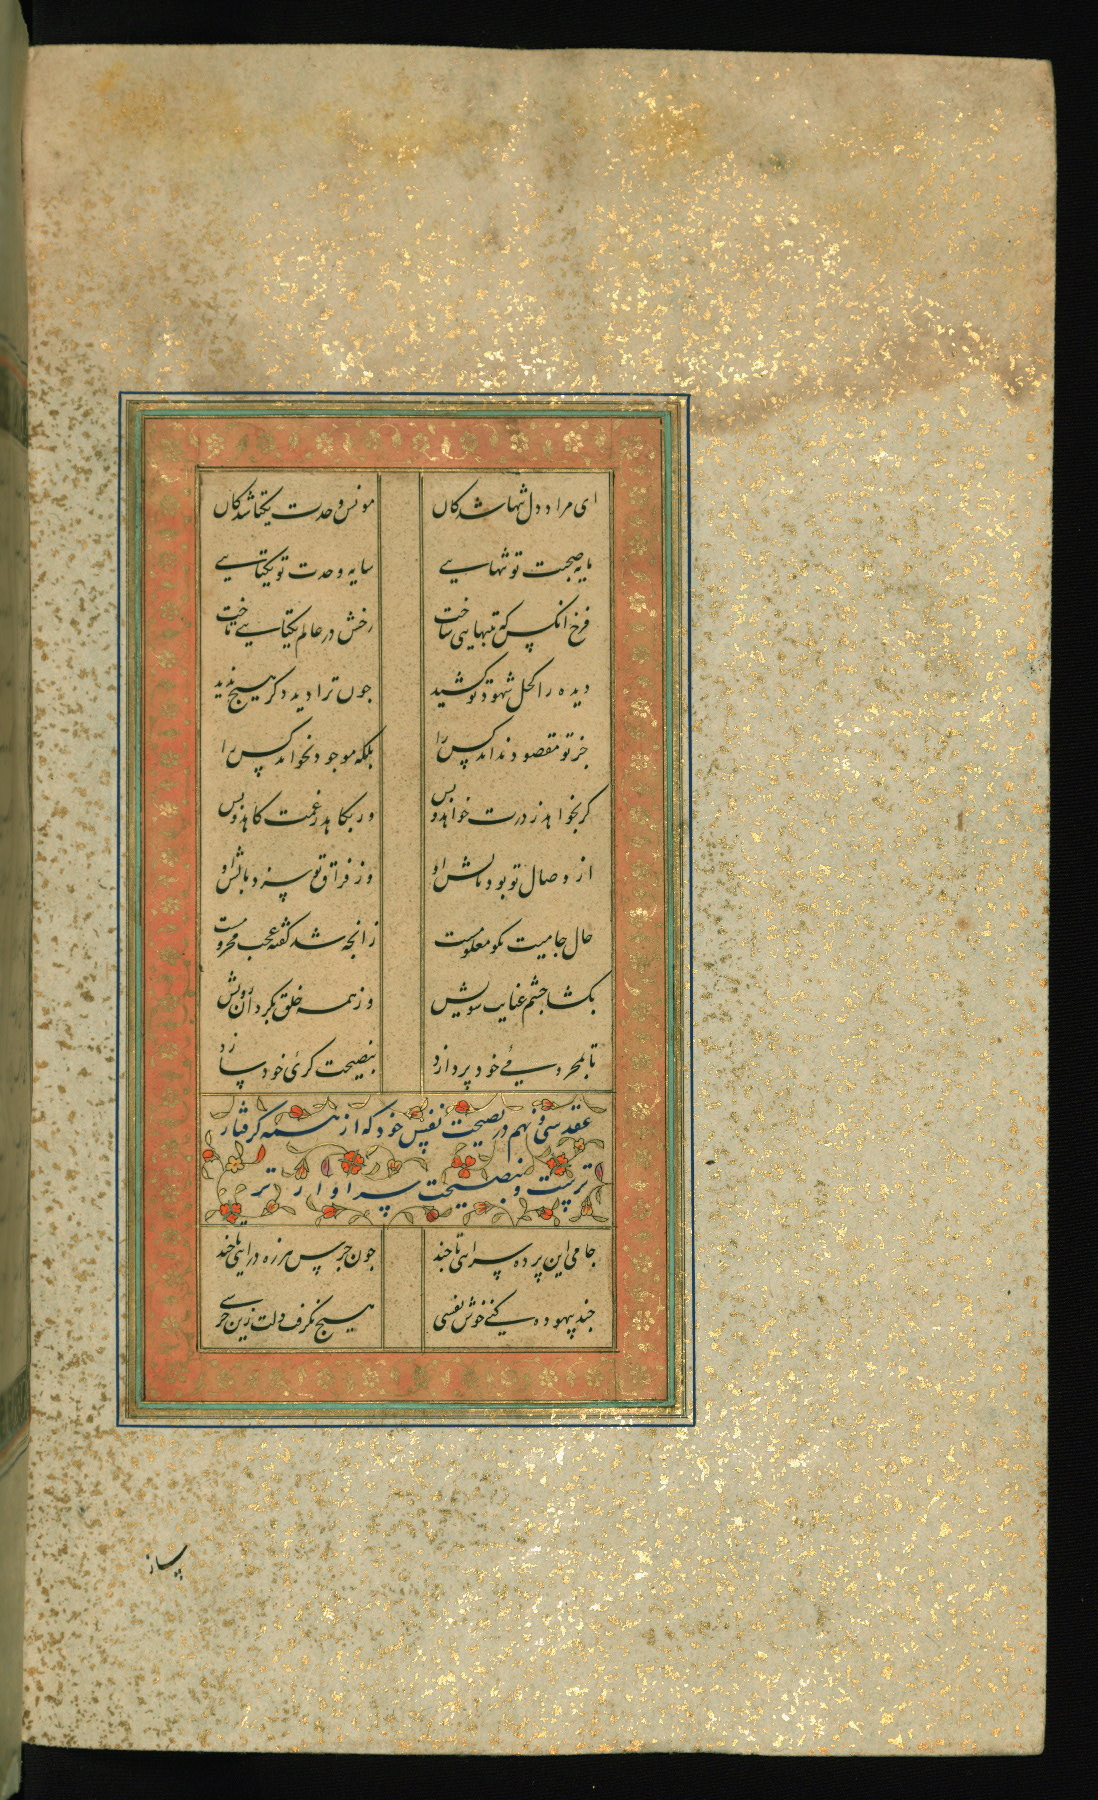 ای مراد دل تنها شدکان مونس وحدت یکتا شدکان
مایه صحبت تو تنهایی سایه وحدت تو یکتایی
فرخ آنکس که بتنهایی ساخت رخش در عالم یکتایی تاخت
دیده را کحل شهود تو کشید چون ترا دید دکر هیچ ندید
جز تو مقصود نداند کس را بلکه موجود نخواند کس را
کر بخواهد ز درت خواهد و بس ور بکاهد ز غمت کاهد و بس
از وصال تو بود مالش او وز فراق تو سزد بالش او
حال جامیت نکو معلومست زانچه شد کفته عجب محرومست
بکشا چشم عنایت سویش وز همه خلق بکردان رویش
تا بمحرومی خود پردازد بنصیحت کری خود سازد
عقد سی و نهم در نصیحت نفس خود که از همه کرفتار
تر بست و بنصیحت سزاوار تر
جامی این پرده سرایی تا چند چون جرس هرزه درایی تا چند
چند بیهوده کنی خوش نفسی هیچ نکرفت دلت زین جرسی
ساز